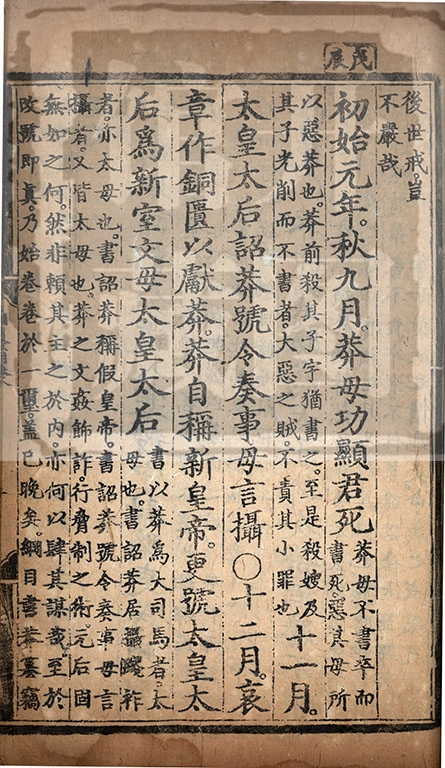 戊辰
後世戒。豈
不嚴哉
初始元年。秋九月。莽母功顯君死
莽母不書卒而
書死。惡其母所
以惡莽也。莽前殺其子宇猶書之。至是殺嫂及
其子光削而不書者。大惡之賊。不責其小罪也
十一月。
太皇太后詔莽號令奏事毋言攝〇十二月。哀
章作銅匱以獻莽。莽自稱新皇帝。更號太皇太
后爲新室文母太皇太后
書以莽爲大司馬者。太
母也。書詔莽居攝踐祚
者。亦太母也。書詔莽稱假皇帝。書詔莽號令奏事毋言
攝者。又皆太母也。莽之文姦飾詐。行脅制之術。元后固
無如之何。然非賴其主之於內。亦何以肆其謀哉。至於
改號即真。乃始卷卷於一璽。蓋已晚矣。綱目書莽篡竊